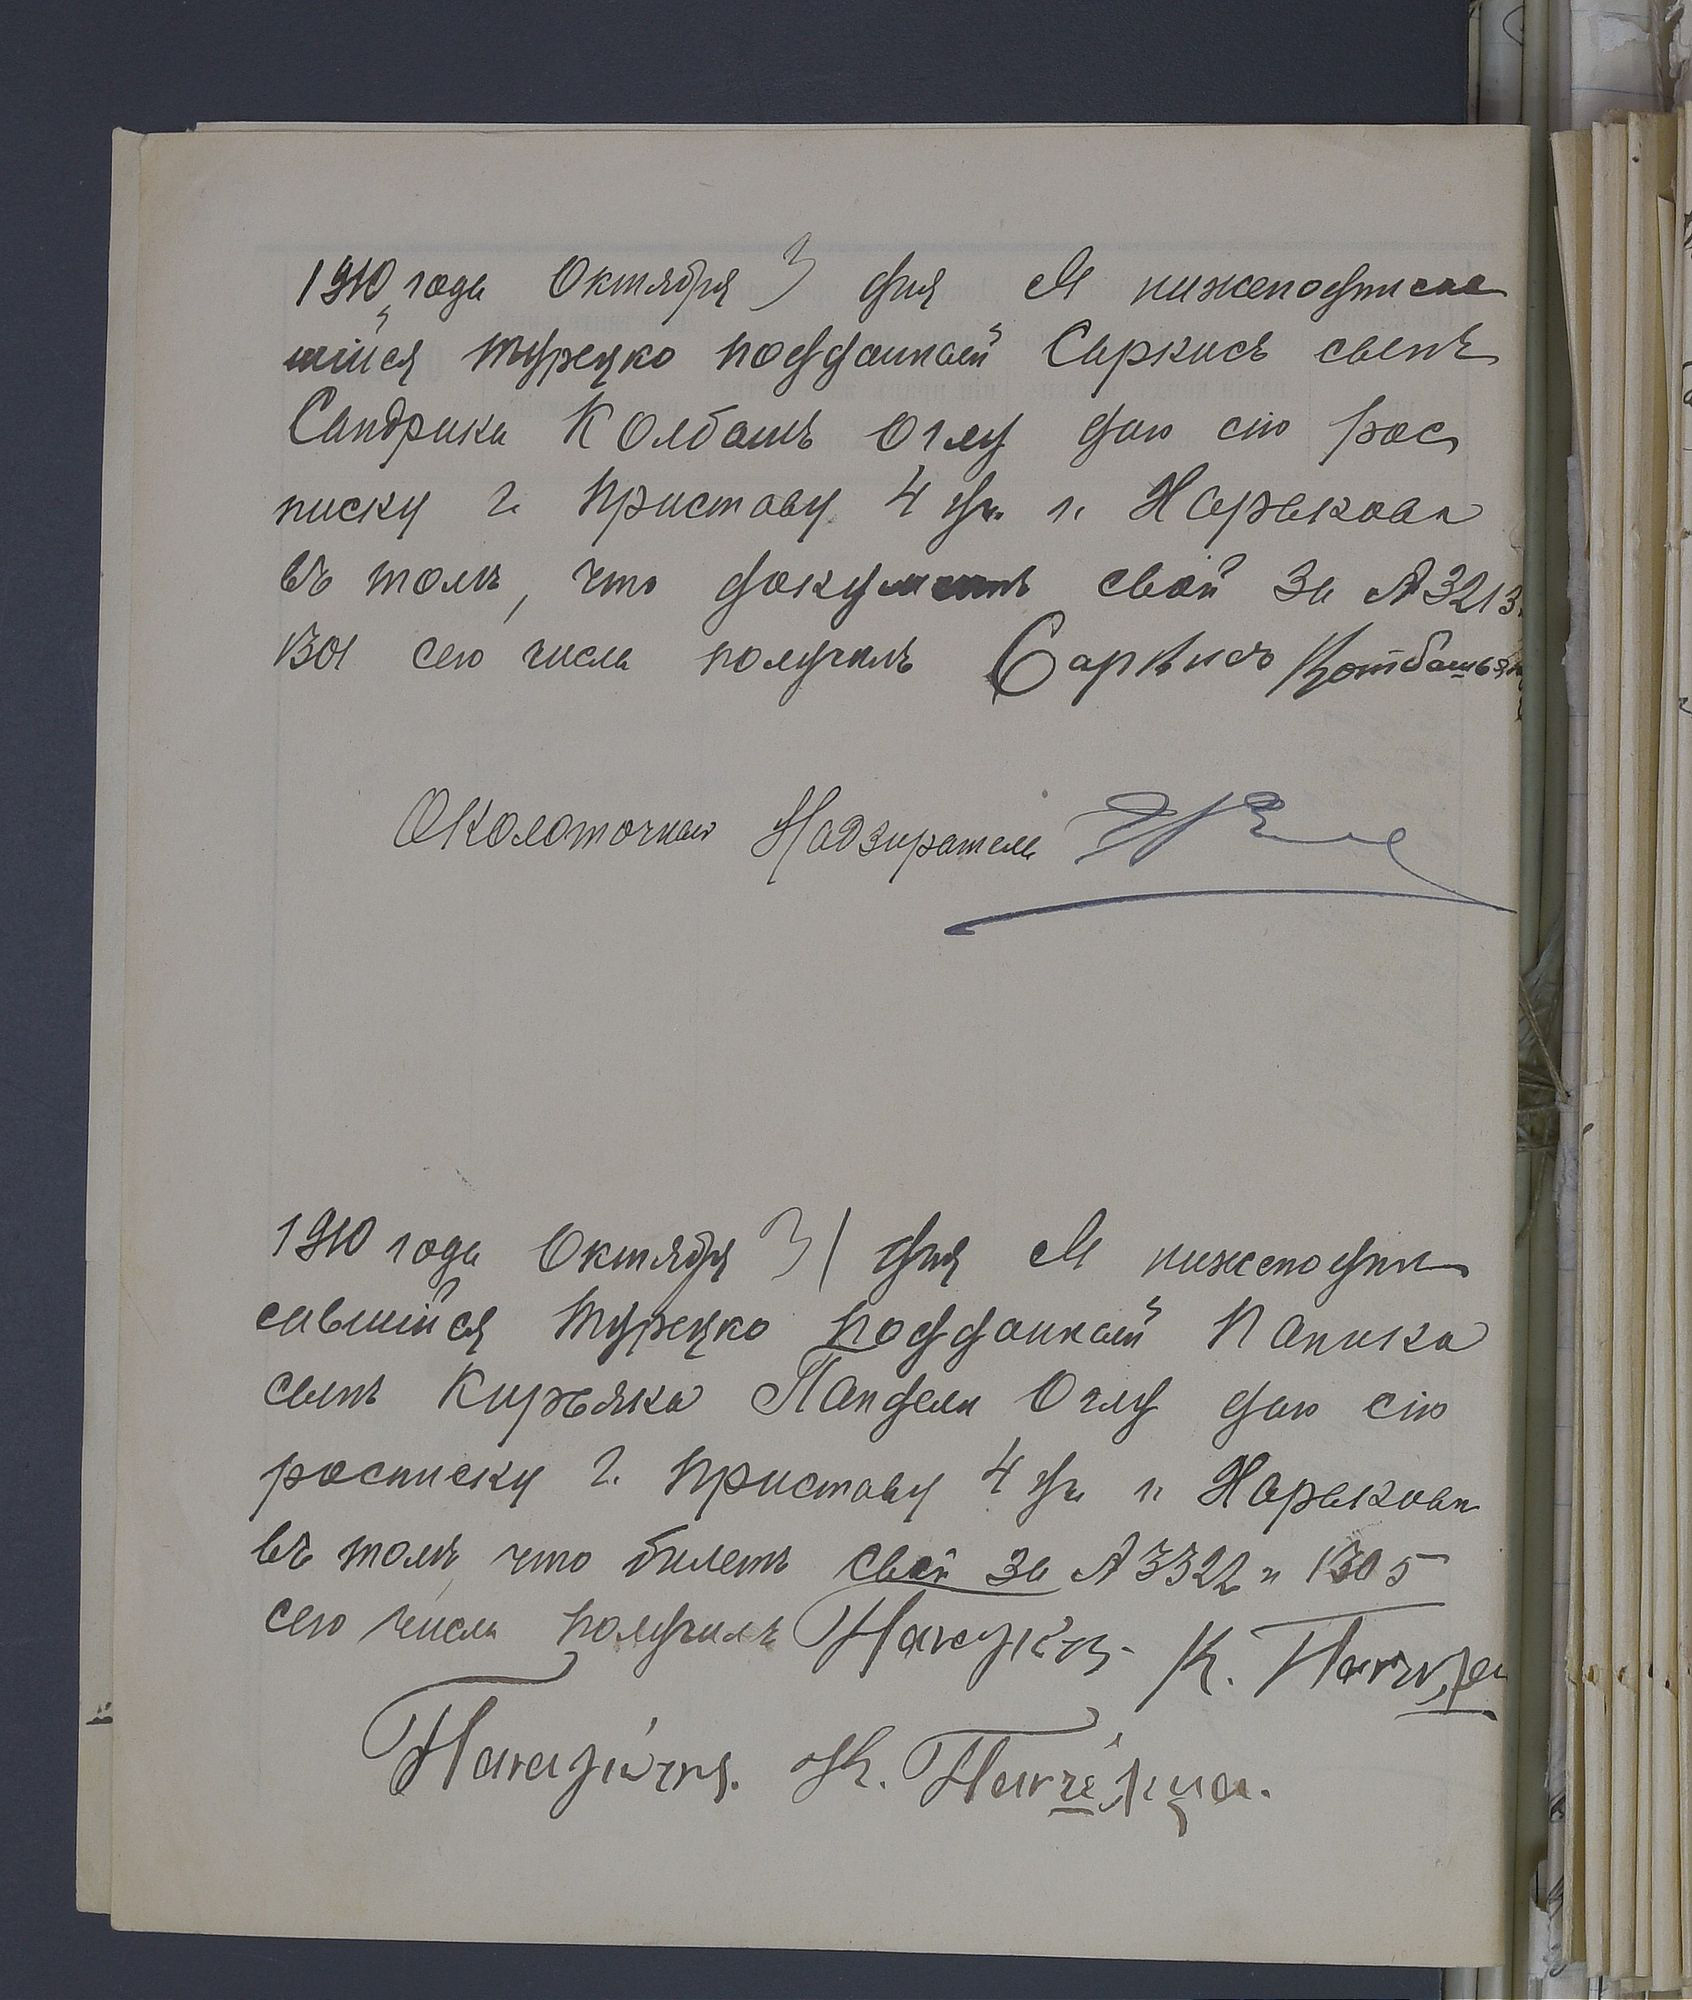 1910 года Октября 3 дня Я нижеподписав
шійся турецко подданный Саркисъ сынъ
Сандрика Колбашъ Оглу даю сію рос
писку г. Приставу 4 уч. г. Харькова
въ томъ, что документъ свой за № 3213
1301 сего числа получилъ Саркисъ
Околоточный Надзиратель
1910 года Октября 31 дня Я нижеподпи
савшійся турецко подданный Папика
сынъ Кирьяка Пандели Оглу даю сію
росписку г. Приставу 4 уч. г. Харькова
въ томъ, что билетъ свой за № 3322 и 1305
сего числа получилъ К.
К.